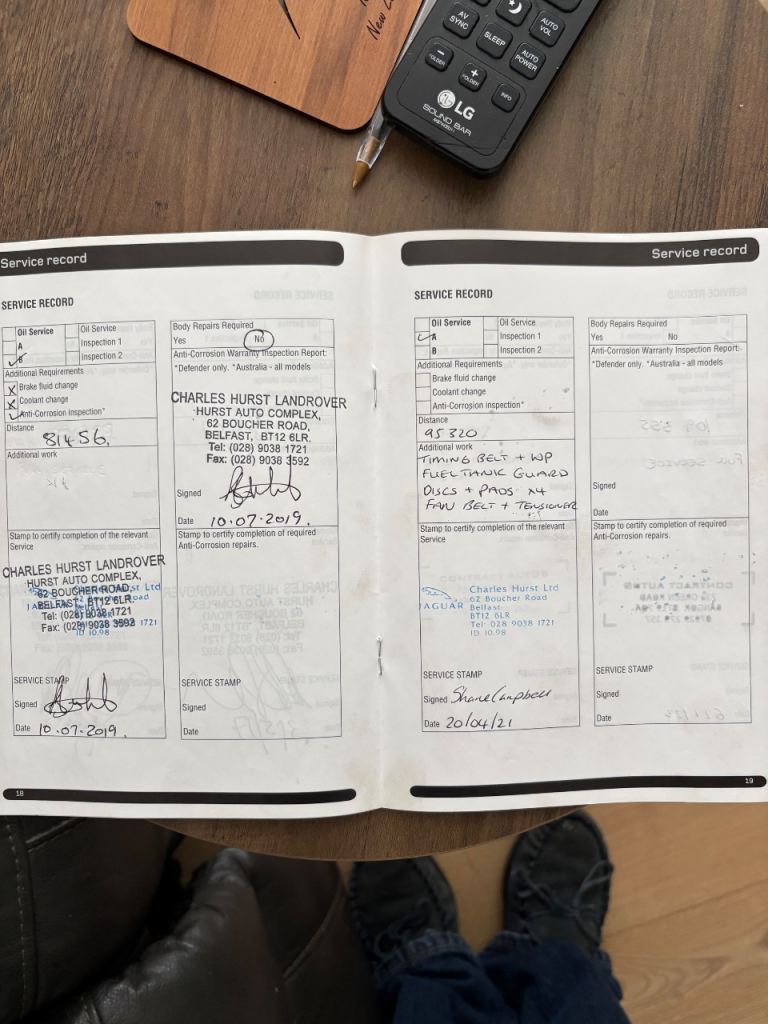 New
AV
SYNC
AUTO
VOL
SLEEP
AUTO
POWER
-
FOLDER
+
FOLDER
INFO
LG
SOUND BAR
Service record
SERVICE RECORD
Oil Service
A
B
Oil Service
Inspection 1
Inspection 2
Additional Requirements
X Brake fluid change
X Coolant change
Anti-Corrosion inspection*
Distance
81456.
Additional work
Stamp to certify completion of the relevant
Service
CHARLES HURST LANDROVER
HURST AUTO COMPLEX,
62 BOUCHER ROAD,
BELFAST, BT12 6LR.
Tel: (028) 9038 1721
Fax: (028) 9038 3592
ID 10.98
SERVICE STAMP
Signed
Date 10.07.2019.
Body Repairs Required
Yes No
Anti-Corrosion Warranty Inspection Report:
*Defender only. *Australia - all models
CHARLES HURST LANDROVER
HURST AUTO COMPLEX,
62 BOUCHER ROAD,
BELFAST, BT12 6LR.
Tel: (028) 9038 1721
Fax: (028) 9038 3592
Signed
Date 10.07.2019.
Stamp to certify completion of required
Anti-Corrosion repairs.
SERVICE STAMP
Signed
Date
18
Service record
SERVICE RECORD
Oil Service
A
B
Oil Service
Inspection 1
Inspection 2
Additional Requirements
Brake fluid change
Coolant change
Anti-Corrosion inspection*
Distance
95320
Additional work
TIMING BELT + WP
FUEL TANK GUARD
DISCS + PADS x4
FAN BELT + TENSIONER
Stamp to certify completion of the relevant
Service
JAGUAR
Charles Hurst Ltd
62 Boucher Road
Belfast
BT12 6LR
Tel 028 9038 1721
ID 10.98
SERVICE STAMP
Signed Shane Campbell
Date 20/04/21
Body Repairs Required
Yes No
Anti-Corrosion Warranty Inspection Report:
*Defender only. *Australia - all models
Signed
Date
Stamp to certify completion of required
Anti-Corrosion repairs.
SERVICE STAMP
Signed
Date
19